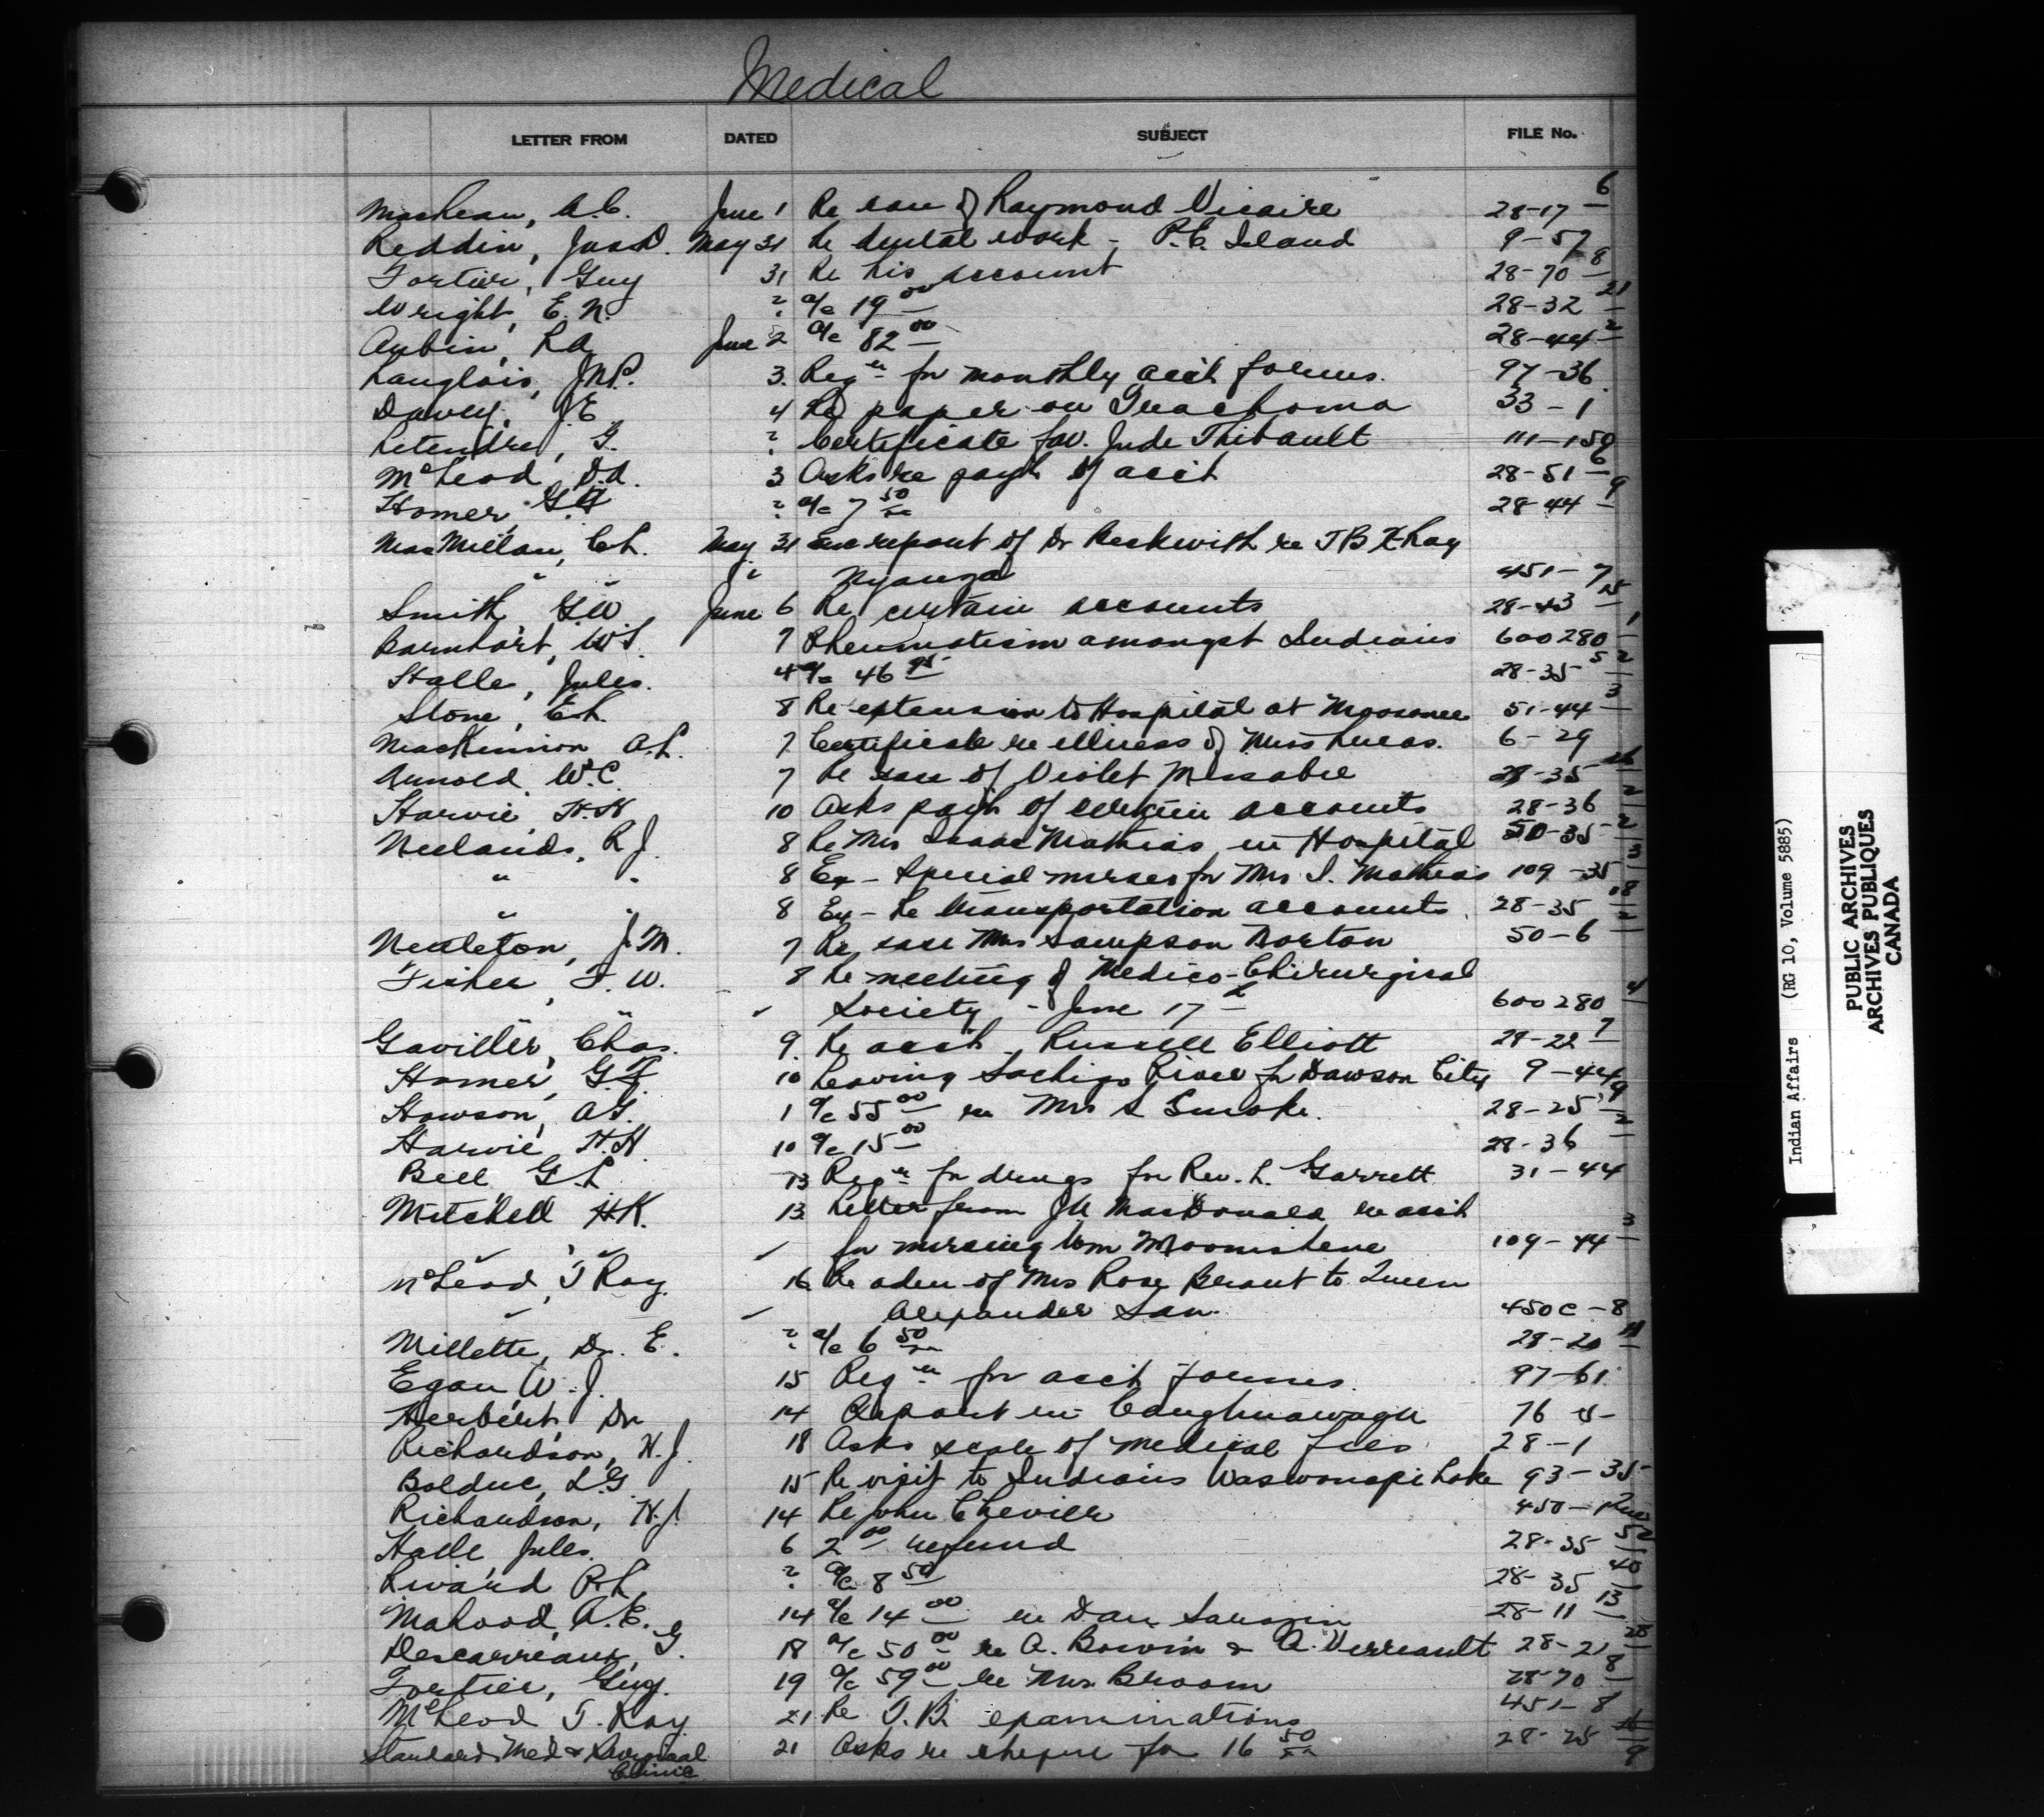 Medical
LETTER FROM DATED SUBJECT FILE No.
MacLean, A.C. June 1 Re case of Raymond Vicaire 28-17 6
Reddin, Jas D. May 31 Re dental work - P.E. Island 9-57
Fortier, Guy 31 Re his account 28-70 8
Wright, E.N. ? a/c 19 00 28-32 21
Aubin, R.A. June 2 a/c 82 00 28-44 2
Langlois, J.N.P. 3. Reqn for monthly acct forms. 97-36
Davey, J.E 4 Re paper on Trachoma 33-1
Letendre, G. ? Certificate fav. Jude Thibault 111-150
McLeod, D.A. 3 Asks re payt of acct 28-51 6
Homer, G.F ? a/c 7 50 28-44 9
MacMillan, C.L. May 31 Enc report of Dr Beckwith re TB XRay
" " " Nyanza 451-7
Smith G.W June 6 Re certain accounts 28-43 15
Barnhart, W.S. 7 Rheumatism amongst Indians 600280 1
Halle, Jules. 4 a/c 46 95 28-35 5/2
Stone, E.L. 8 Re extension to Hospital at Moosonee 51-44 3
MacKinnon A.L. 7 Certificate re illness of Miss Lucas. 6-29
Arnold, W.C. 7 Re case of Violet Missabie 28-35
Harvie H.H 10 Asks payt of certain accounts 28-36 2
Neelands, R.J. 8 Re Mrs Isaac Mathias in Hospital 50-35 2
" " 8 Ex - Special nurses for Mrs I. Mathias 109-35 3
" " 8 Ex - Re transportation accounts 28-35 18/2
Nettleton, J.M. 7 Re case Mrs Sampson Borton 50-6
Fisher, F.W. 8 Re meeting of Medico-Chirurgical
" " " Society - June 17 600280 4
Gaviller, Chas. 9. Re acct. Russell Elliott 28-22 7
Homer, G.F. 10 Leaving Sachigo River for Dawson City 9-44
Howson, A.G. 1 a/c 55 00 re Mrs S Smoke. 28-25 9
Harvie, H.H. 10 a/c 15 00 28-36 2
Bell G.L 13 Reqn for drugs for Rev. L. Garrett 31-44
Mitchell H.K. 13 Letter from J.A MacDonald re acct
" " " for nursing Wm Moonishene 109-44 3
McLeod, T Roy. 16 Re adm of Mrs Rose Berant to Queen
" " Alexander San. 450C-8
Millette, Dr. E. ? a/c 6 50 28-20 11
Egan W.J. 15 Reqn for acct forms. 97-61
Herbert, Dr 14 Report re Caughnawaga 76 5-
Richardson, H.J. 18 Asks scale of medical fees 28-1
Bolduc, L.G. 15 Re visit to Indians Waswanapi Lake 93-35
Richardson, H.J. 14 Re John Chevier 450-Que
Halle Jules. 6 2 00 refund 28-35 5/2
Rivard R.L ? a/c 8 50 28-35 40
Mahood, A.E. 14 a/c 14 00 re Dan Sarazin 28-11 13
Descarreaux, G. 18 a/c 50 00 re A. Boivin & A. Verreault 28-21 28
Fortier, Guy. 19 a/c 59 00 re Mrs Broom 28-70 8
McLeod T. Roy. 21 Re T.B. examinations 451-8
Standard Med & Surgical 21 Asks re cheque for 16 50 28-25 9
Clinic
Indian Affairs (RG 10, Volume 5885)
PUBLIC ARCHIVES
ARCHIVES PUBLIQUES
CANADA